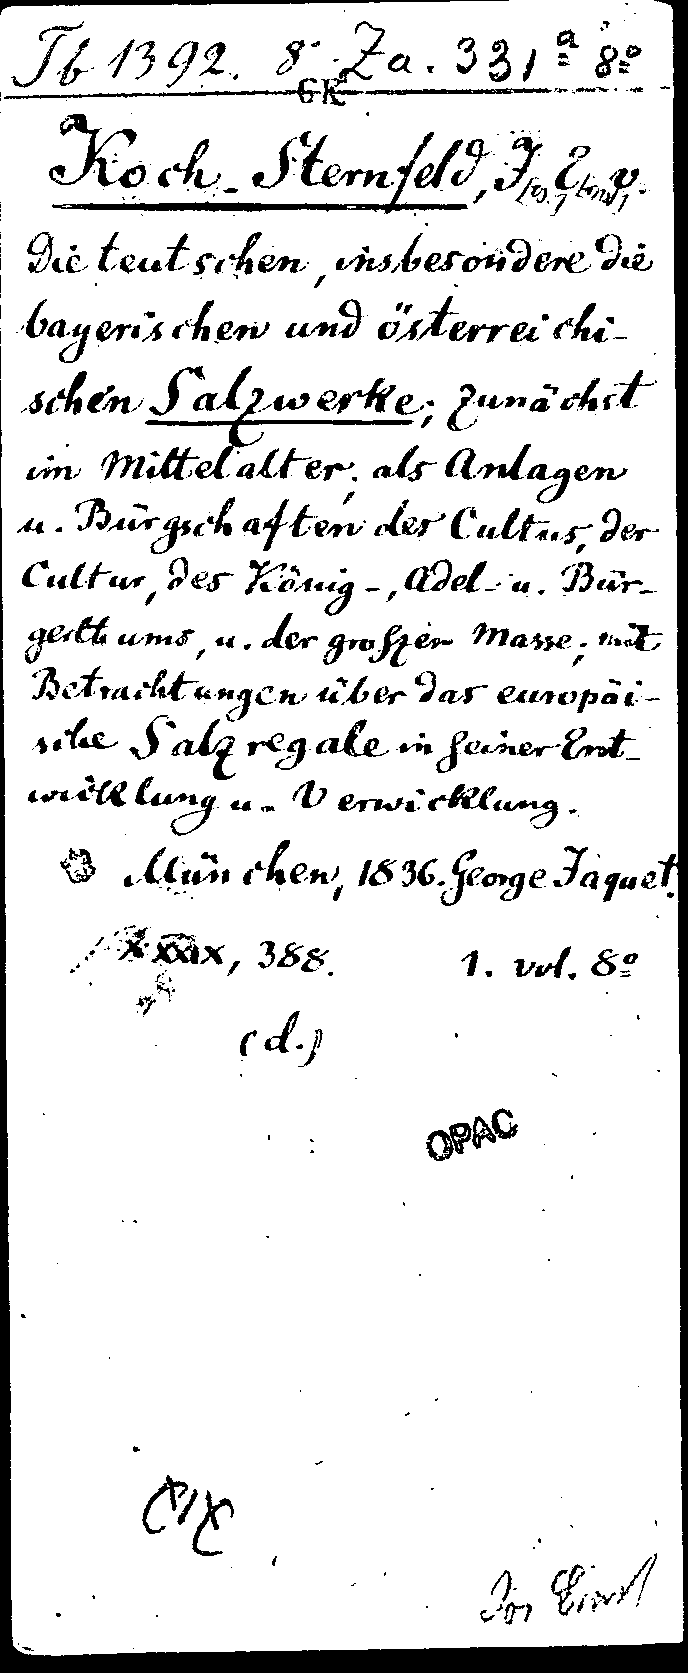 Tb 1392. 8° Za. 331 a 8°
GK
Koch-Sternfeld, J[os.] E[rnst] v.
Die teutschen, insbesondere die
bayerischen und österreichi-
schen Salzwerke; zunächst
im Mittelalter; als Anlagen
u. Bürgschaften des Cultus, der
Cultur, des König-, Adel- u. Bür-
gerthums, u. der groszen Masse; mit
Betrachtungen über das europäi-
sche Salzregale in seiner Ent-
wicklung u. Verwicklung.
München, 1836. George Jaquet.
XXXIX, 388. 1. vol. 8°
(d.)
OPAC
Jos Ernst